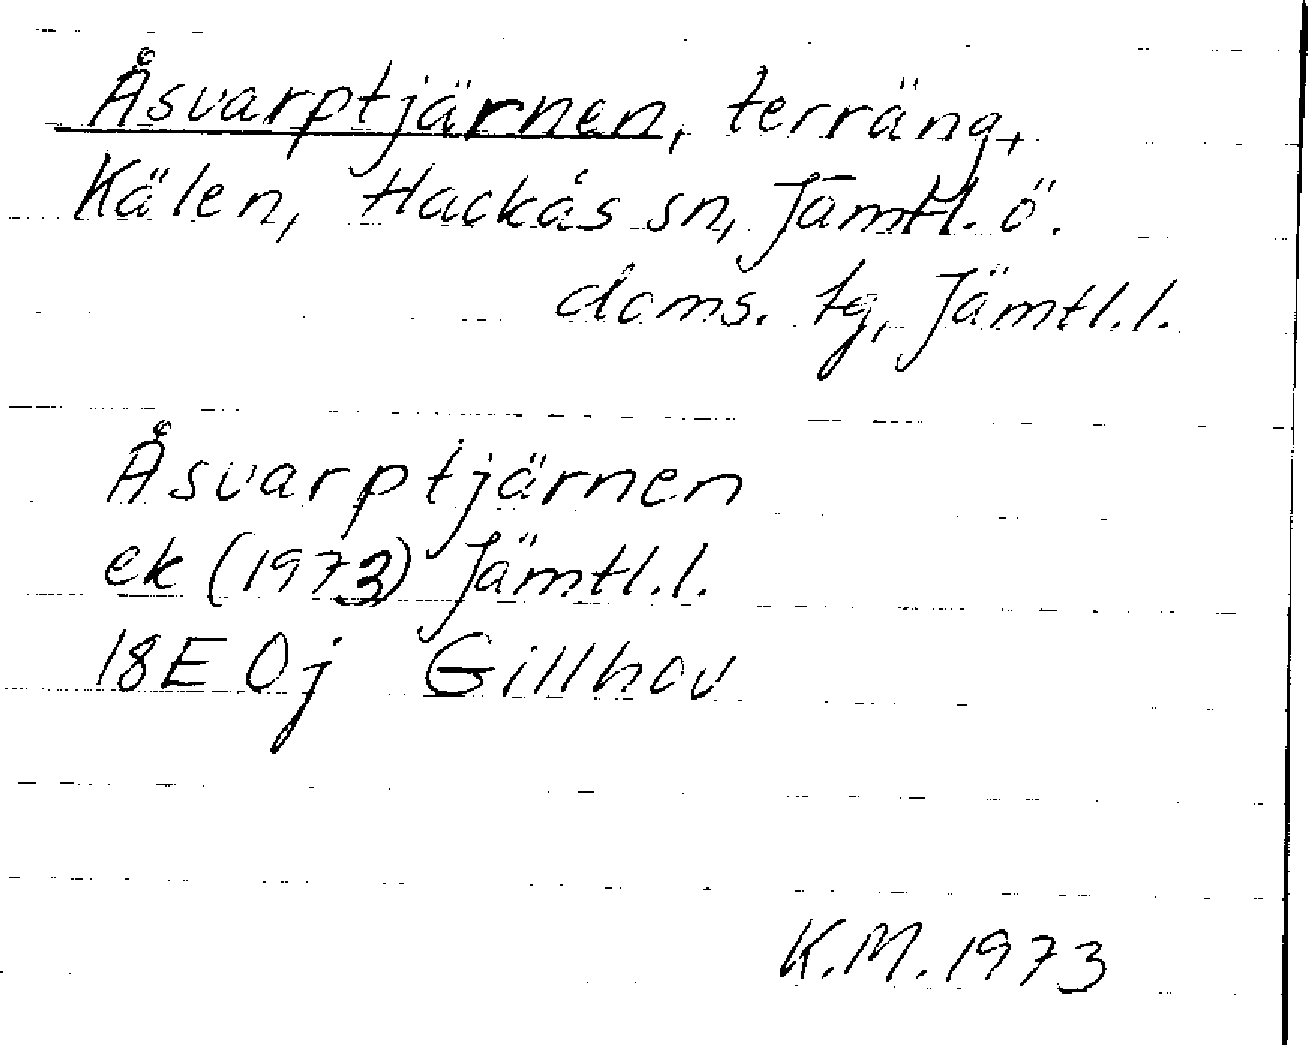 Åsvarptjärnen, terräng,
Kälen, Hackås sn, Jämtl. ö.
doms. tg, Jämtl.l.
Åsvarptjärnen
ek (1973) Jämtl.l.
18E 0j Gillhov
K.M. 1973